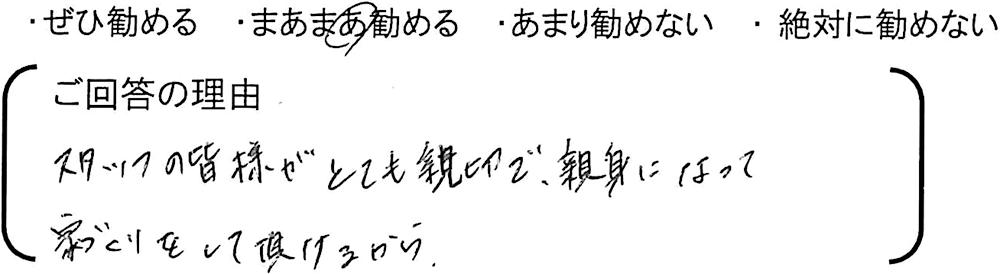 ・ぜひ勧める ・まあまあ勧める ・あまり勧めない ・絶対に勧めない
ご回答の理由
スタッフの皆様がとても親切で、親身になって
家づくりをして頂けるから.